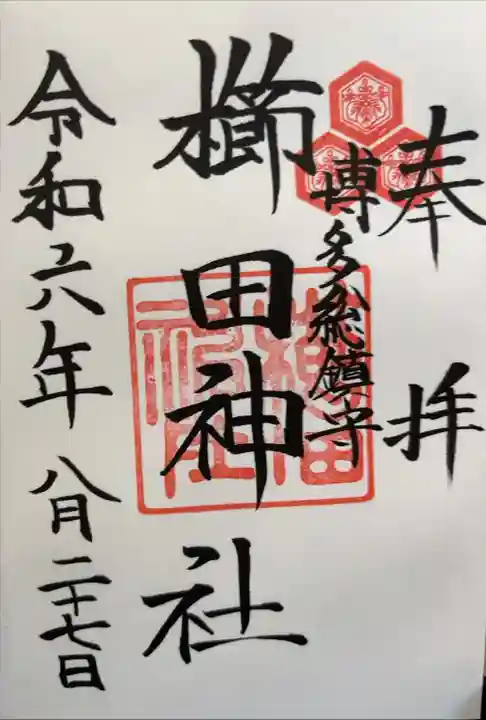 奉拝
博多総鎮守
櫛田神社
令和六年八月二十七日